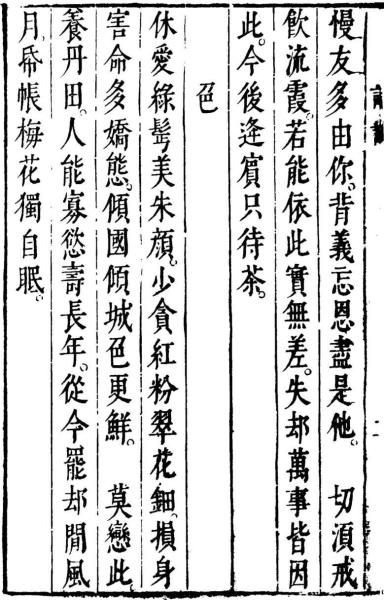 慢友多由你。背義忘恩盡是他。　切湏戒
飲流霞。若能依此實無差。失却萬事皆因
此。今後逢賓只待茶。
色
休愛綠髩美朱顔。少貪紅粉翠花鈿。損身
害命多嬌態。傾國傾城色更鮮。　莫戀此。
養丹田。人能寡慾壽長年。從今罷却閒風
月。帋帳梅花獨自眠。